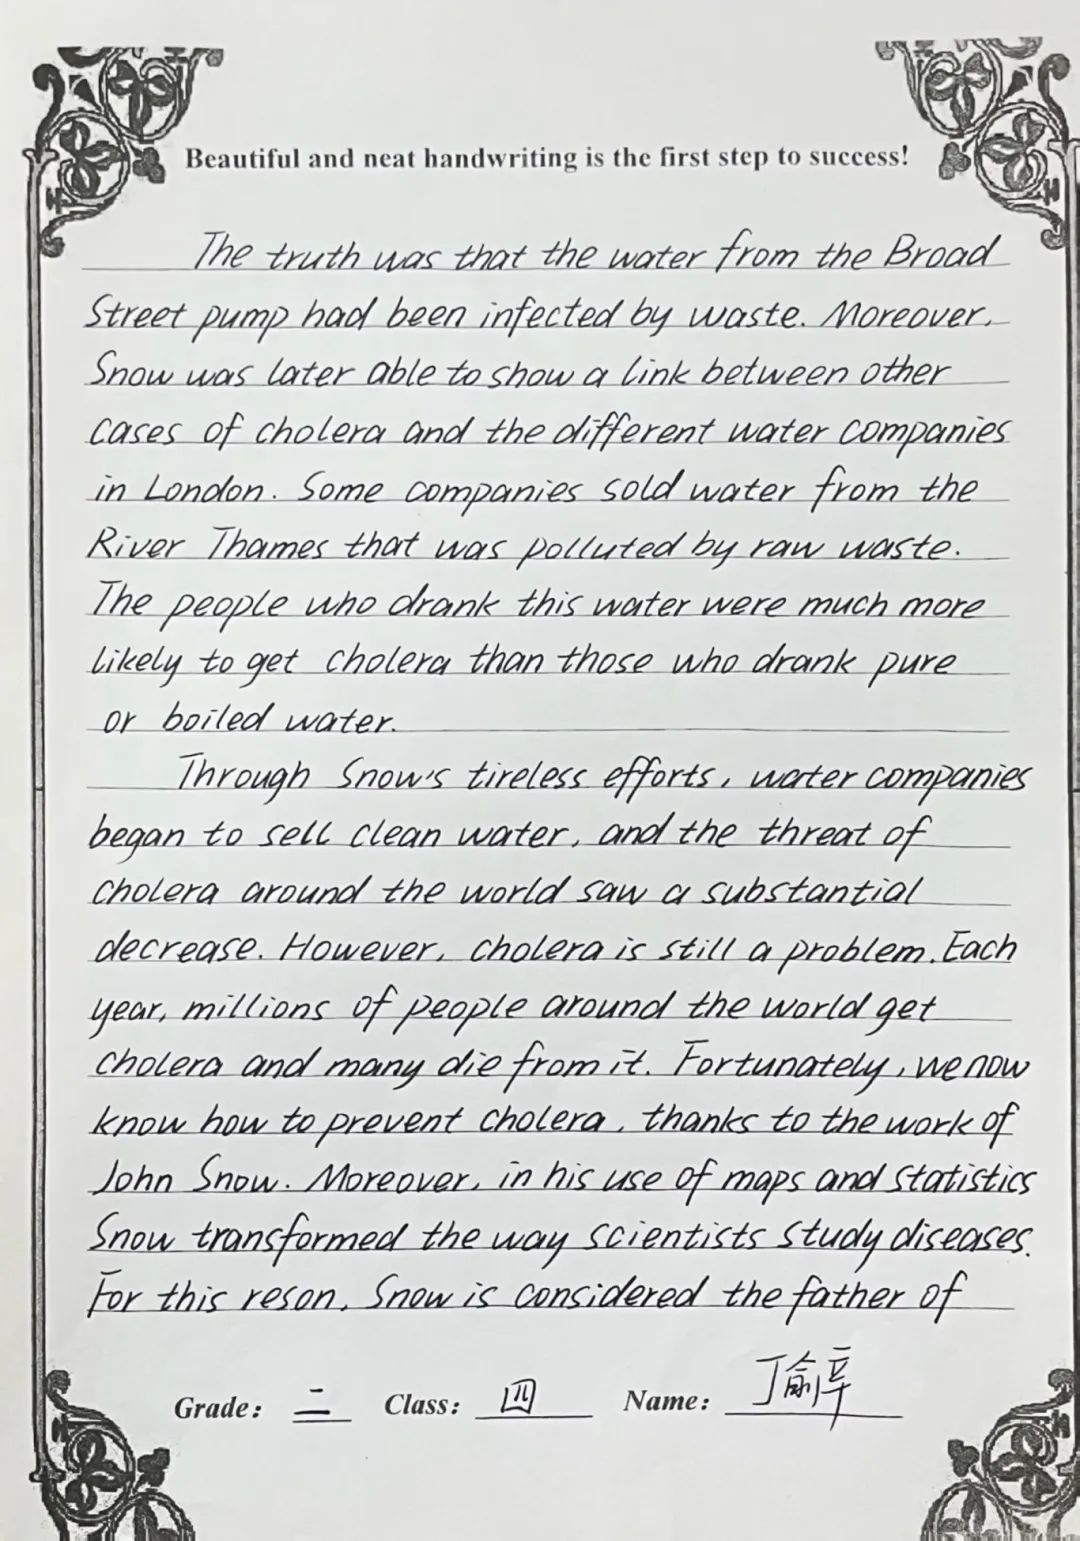 Beautiful and neat handwriting is the first step to success!
The truth was that the water from the Broad
Street pump had been infected by waste. Moreover,
Snow was later able to show a link between other
cases of cholera and the different water companies
in London. Some companies sold water from the
River Thames that was polluted by raw waste.
The people who drank this water were much more
likely to get cholera than those who drank pure
or boiled water.
Through Snow's tireless efforts, water companies
began to sell clean water, and the threat of
cholera around the world saw a substantial
decrease. However, cholera is still a problem. Each
year, millions of people around the world get
cholera and many die from it. Fortunately, we now
know how to prevent cholera, thanks to the work of
John Snow. Moreover, in his use of maps and statistics
Snow transformed the way scientists study diseases.
For this reson, Snow is considered the father of
Grade: 二 Class: 四 Name: 丁